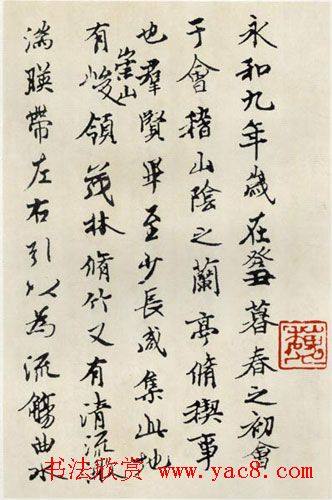 永和九年歲在癸丑暮春之初會
于會稽山陰之蘭亭脩禊事
也羣賢畢至少長咸集此地
有崇山峻領茂林脩竹又有清流激
湍暎帶左右引以為流觴曲水
书法欣赏 www.yac8.com